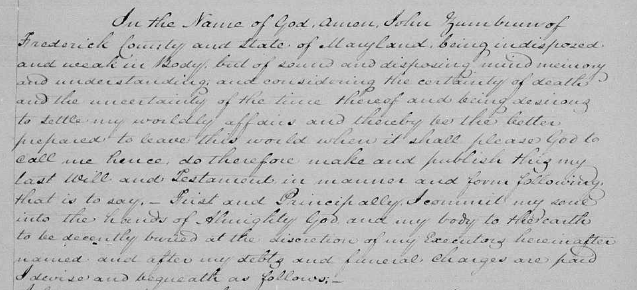 In the Name of God, Amen, John Zumbrun of
Frederick County and state of Maryland, being indisposed
and weak in Body, but of sound and disposing mind memory
and understanding, and considering the certainty of death
and the uncertainty of the time thereof and being desirous
to settle my worldly affairs and thereby be the better
prepared to leave this world when it shall please God to
call me hence, do therefore make and publish this my
last Will and Testament in manner and form following,
that is to say,— First and Principally, I commit my soul
into the hands of Almighty God and my body to the earth
to be decently buried at the discretion of my Executors hereinafter
named and after my debts and funeral charges are paid
I devise and bequeath as follows:—